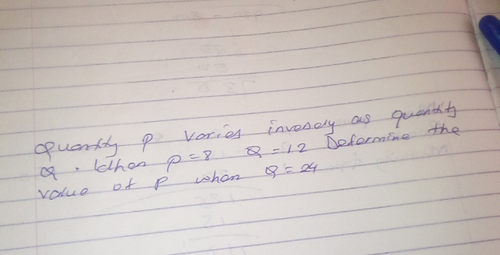 Quantity P varies inversely as quantity
Q. When P=8 Q=12 Determine the
value of P when Q=24